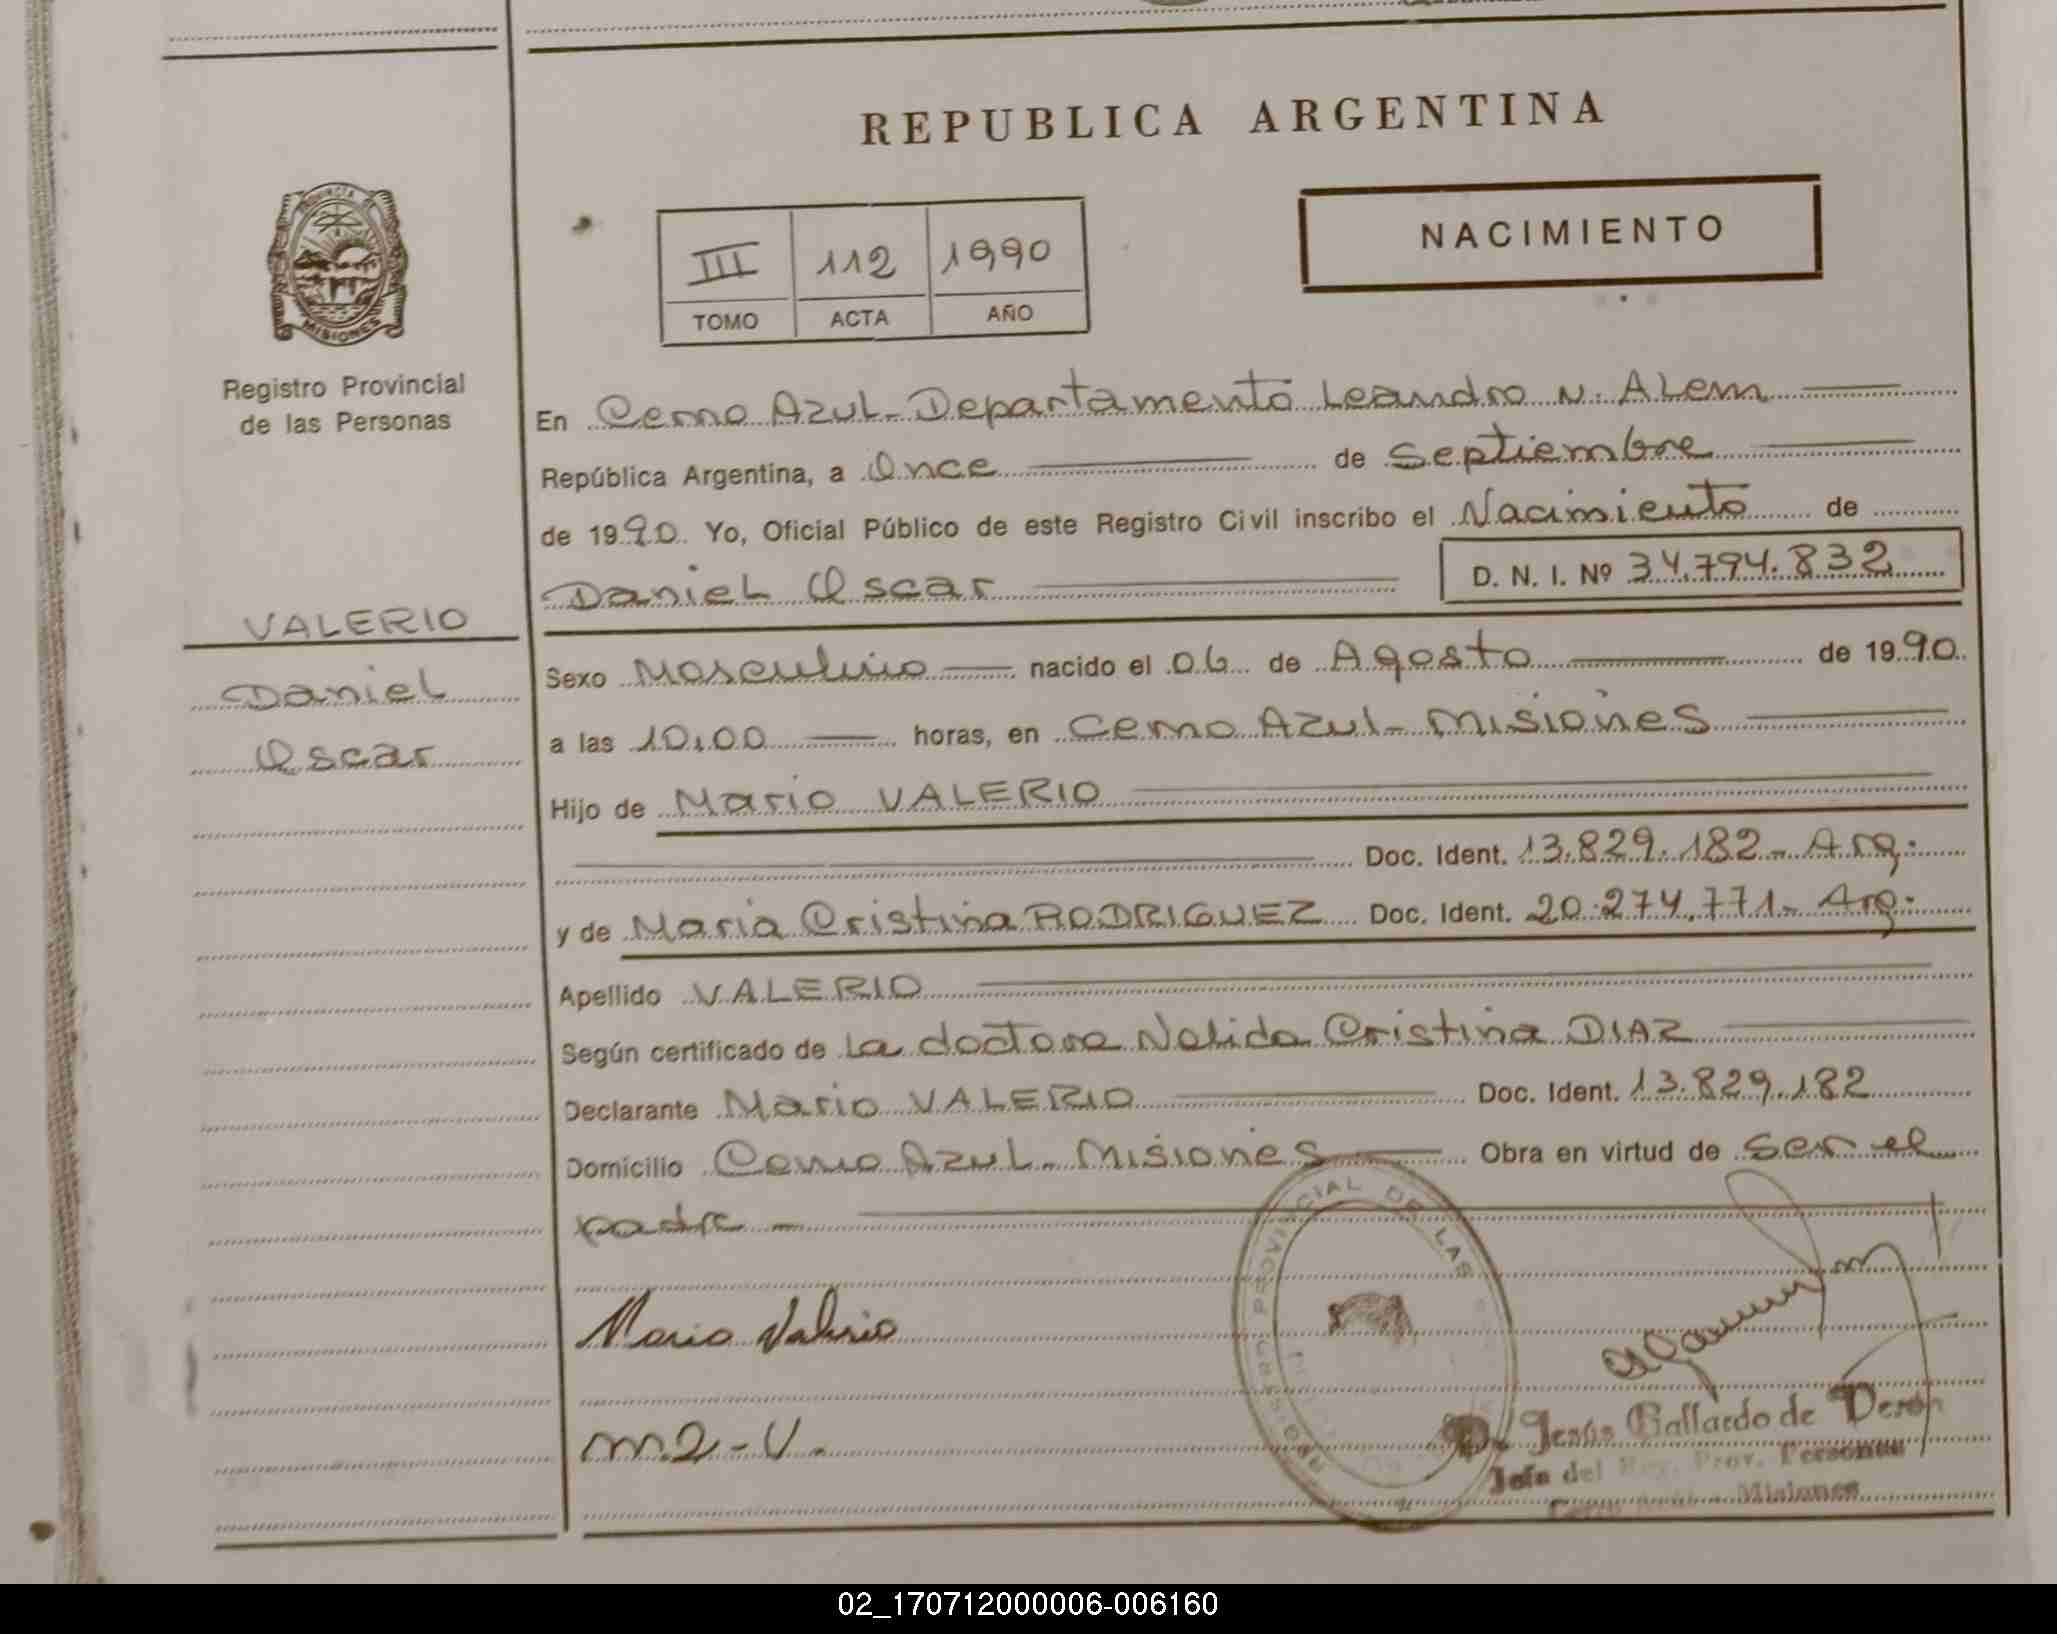 REPUBLICA ARGENTINA
PROVINCIA DE MISIONES
III 112 1990
TOMO ACTA AÑO
NACIMIENTO
Registro Provincial
de las Personas
VALERIO
Daniel
Oscar
En Cerro Azul - Departamento Leandro N. Alem
República Argentina, a Once de Septiembre
de 1990. Yo, Oficial Público de este Registro Civil inscribo el Nacimiento de
Daniel Oscar D. N. I. Nº 34.794.832
Sexo Masculino nacido el 06 de Agosto de 1990
a las 10,00 horas, en Cerro Azul - Misiones
Hijo de Mario VALERIO
Doc. Ident. 13.829.182 - Arg.
y de Maria Cristina RODRIGUEZ Doc. Ident. 20.274.771 - Arg.
Apellido VALERIO
Según certificado de la doctora Nelida Cristina DIAZ
Declarante Mario VALERIO Doc. Ident. 13.829.182
Domicilio Cerro Azul - Misiones Obra en virtud de ser el
padre -
Mario Valerio
m2 - V.
PROVINCIAL DE LAS
Jesús Gallardo de Perón
Jefa del Reg. Prov. Personas
Misiones
02_170712000006-006160